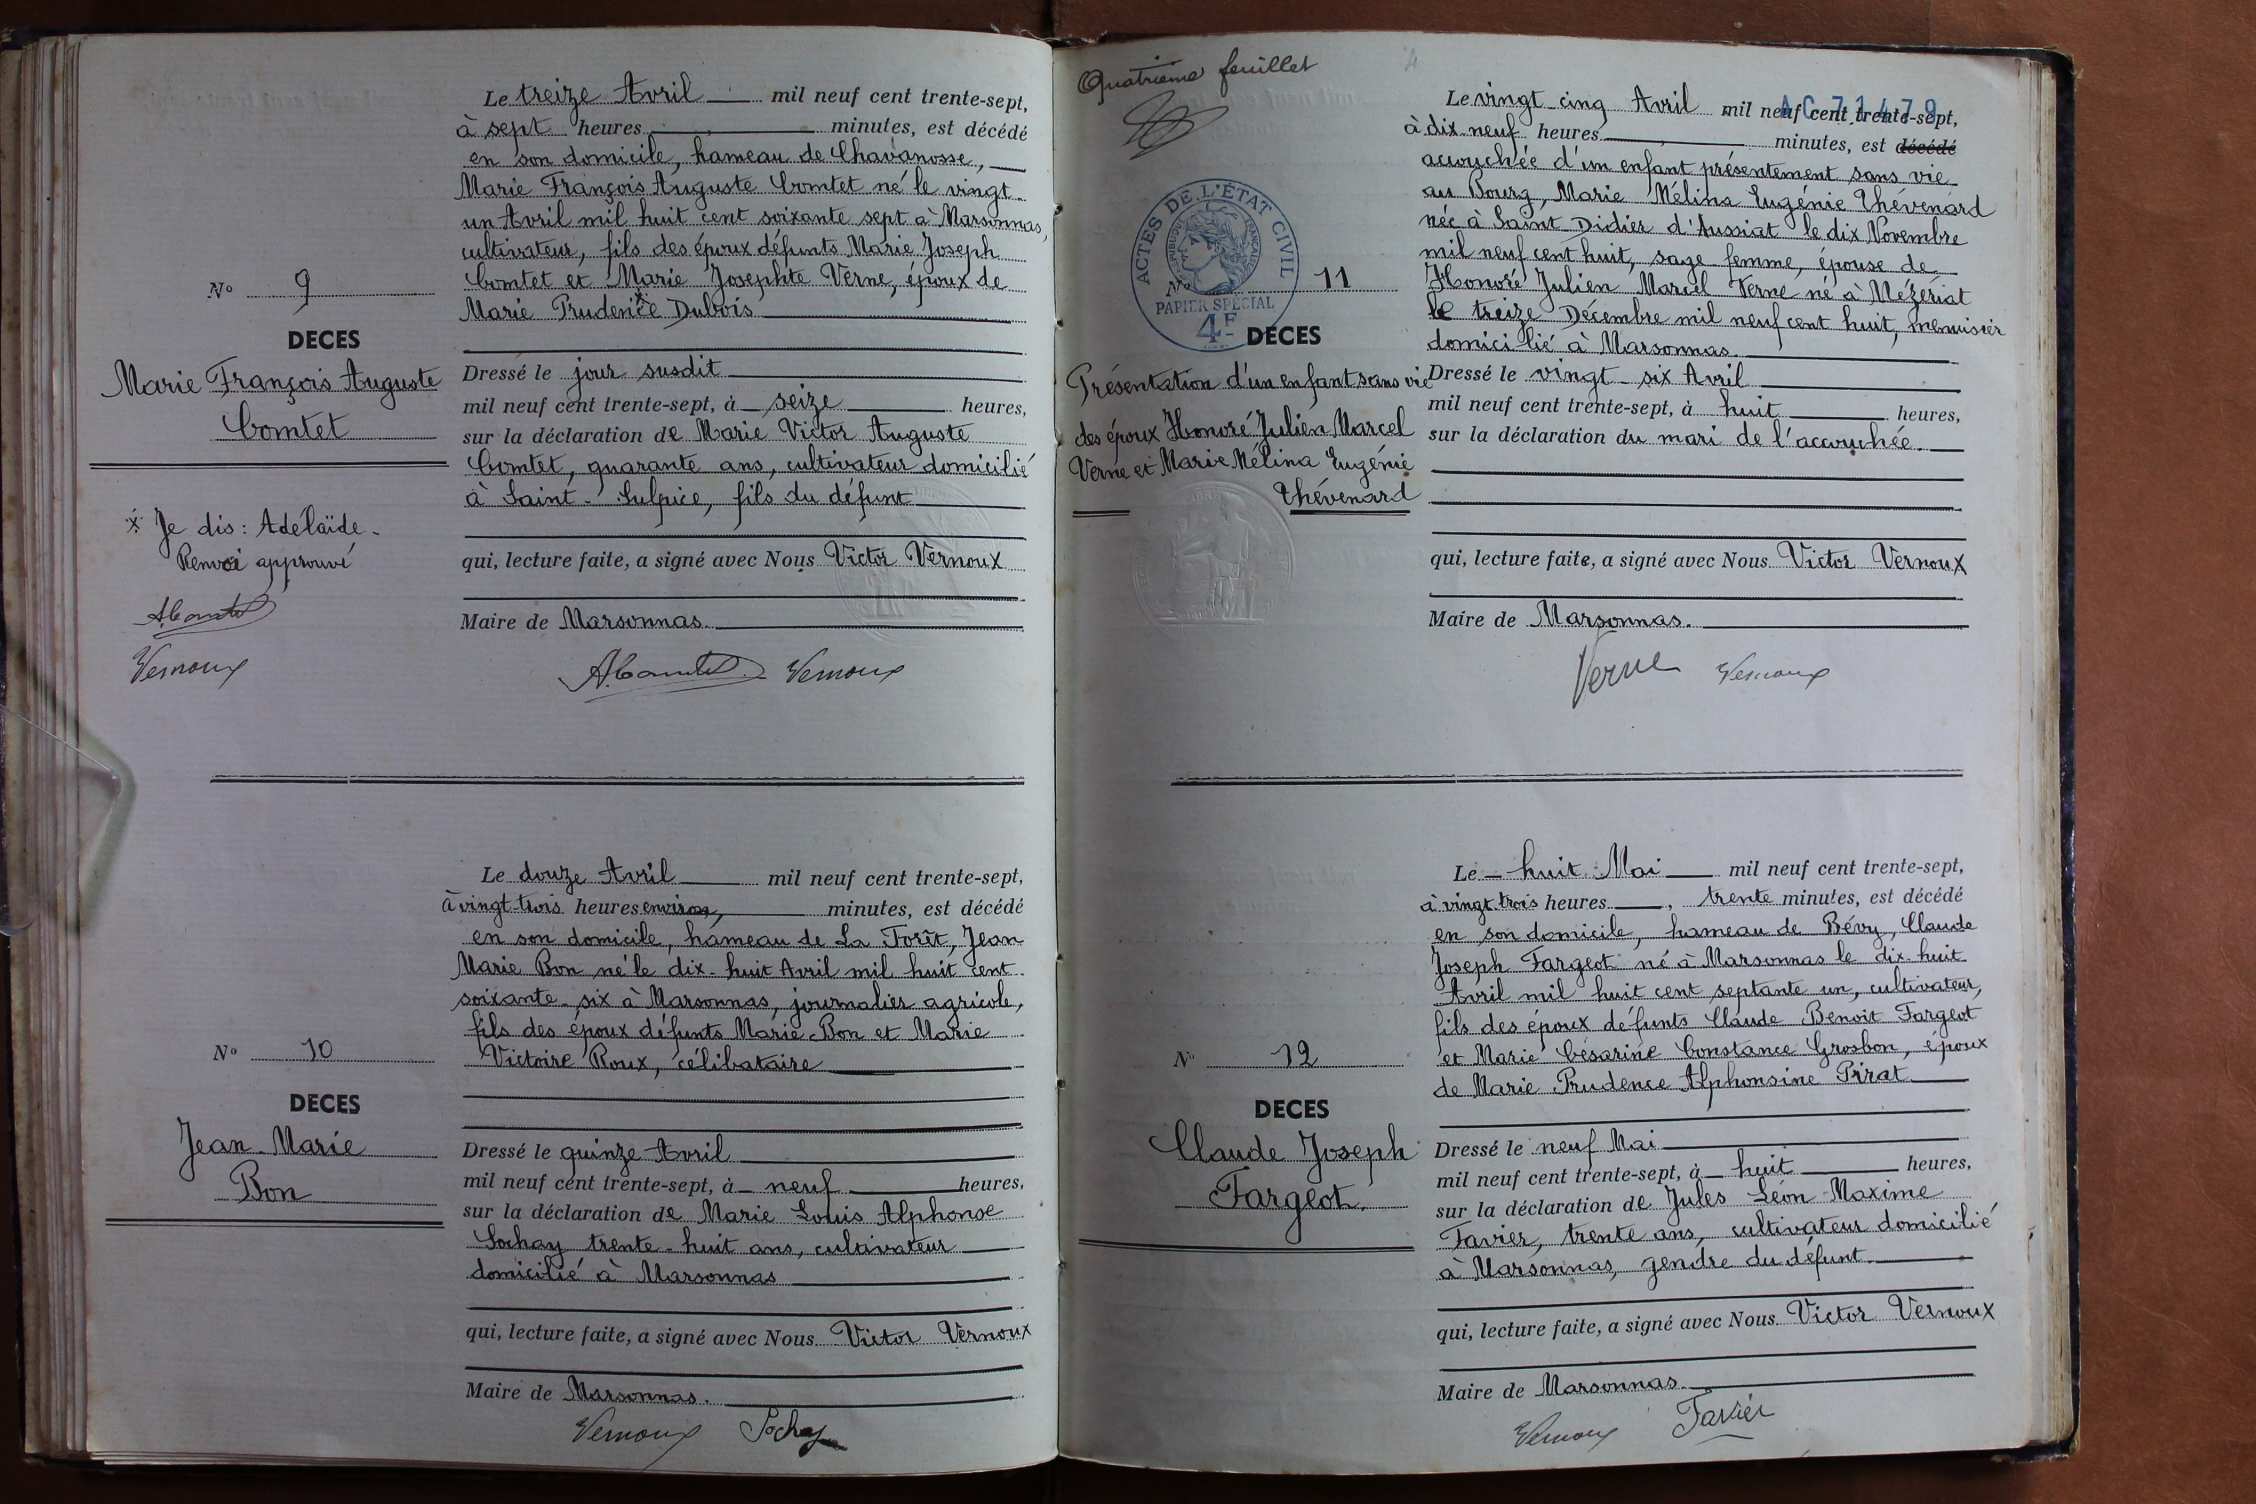 Le treize Avril mil neuf cent trente-sept,
à sept heures minutes, est décédé
en son domicile, hameau de Chavanosse,
Marie François Auguste Comtet né le vingt
un Avril mil huit cent soixante sept à Marsonnas,
cultivateur, fils des époux défunts Marie Joseph
Comtet et Marie Josephte Verne, époux de
Marie Prudence Dubois
N° 9
DECES
Marie François Auguste
Comtet
Dressé le jour susdit
mil neuf cent trente-sept, à seize heures,
sur la déclaration de Marie Victor Auguste
Comtet, quarante ans, cultivateur domicilié
à Saint-Sulpice, fils du défunt
qui, lecture faite, a signé avec Nous Victor Vernoux
Maire de Marsonnas.
x Je dis: Adelaïde.
Renvoi approuvé
A. Comtet
Vernoux
A. Comtet Vernoux
Le douze Avril mil neuf cent trente-sept,
à vingt-trois heures environ, minutes, est décédé
en son domicile, hameau de La Forêt, Jean
Marie Bon né le dix-huit Avril mil huit cent
soixante-six à Marsonnas, journalier agricole,
fils des époux défunts Marie Bon et Marie
Victoire Roux, célibataire
N° 10
DECES
Jean-Marie
Bon
Dressé le quinze Avril
mil neuf cent trente-sept, à neuf heures,
sur la déclaration de Marie Louis Alphonse
Sochay trente-huit ans, cultivateur
domicilié à Marsonnas
qui, lecture faite, a signé avec Nous Victor Vernoux
Maire de Marsonnas.
Vernoux Sochay
Quatrième feuillet
4
AC 71479
Le vingt-cinq Avril mil neuf cent trente-sept,
à dix-neuf heures minutes, est décédé
accouchée d'un enfant présentement sans vie
au Bourg, Marie Mélina Eugénie Thévenard
née à Saint Didier d'Aussiat le dix Novembre
mil neuf cent huit, sage femme, épouse de
Honoré Julien Marcel Verne né à Mézériat
le treize Décembre mil neuf cent huit, menuisier
domicilié à Marsonnas.
ACTES DE L'ÉTAT CIVIL
RÉPUBLIQUE FRANÇAISE
PAPIER SPÉCIAL
4F
N° 11
DECES
Présentation d'un enfant sans vie
des époux Honoré Julien Marcel
Verne et Marie Mélina Eugénie
Thévenard
Dressé le vingt-six Avril
mil neuf cent trente-sept, à huit heures,
sur la déclaration du mari de l'accouchée.
qui, lecture faite, a signé avec Nous Victor Vernoux
Maire de Marsonnas.
Verne Vernoux
Le huit Mai mil neuf cent trente-sept,
à vingt-trois heures, trente minutes, est décédé
en son domicile, hameau de Bévy, Claude
Joseph Fargeot né à Marsonnas le dix-huit
Avril mil huit cent septante un, cultivateur,
fils des époux défunts Claude Benoit Fargeot
et Marie Césarine Constance Grosbon, époux
de Marie Prudence Alphonsine Pirat
N° 12
DECES
Claude Joseph
Fargeot.
Dressé le neuf Mai
mil neuf cent trente-sept, à huit heures,
sur la déclaration de Jules Léon Maxime
Favier, trente ans, cultivateur domicilié
à Marsonnas, gendre du défunt.
qui, lecture faite, a signé avec Nous Victor Vernoux
Maire de Marsonnas
Vernoux Favier